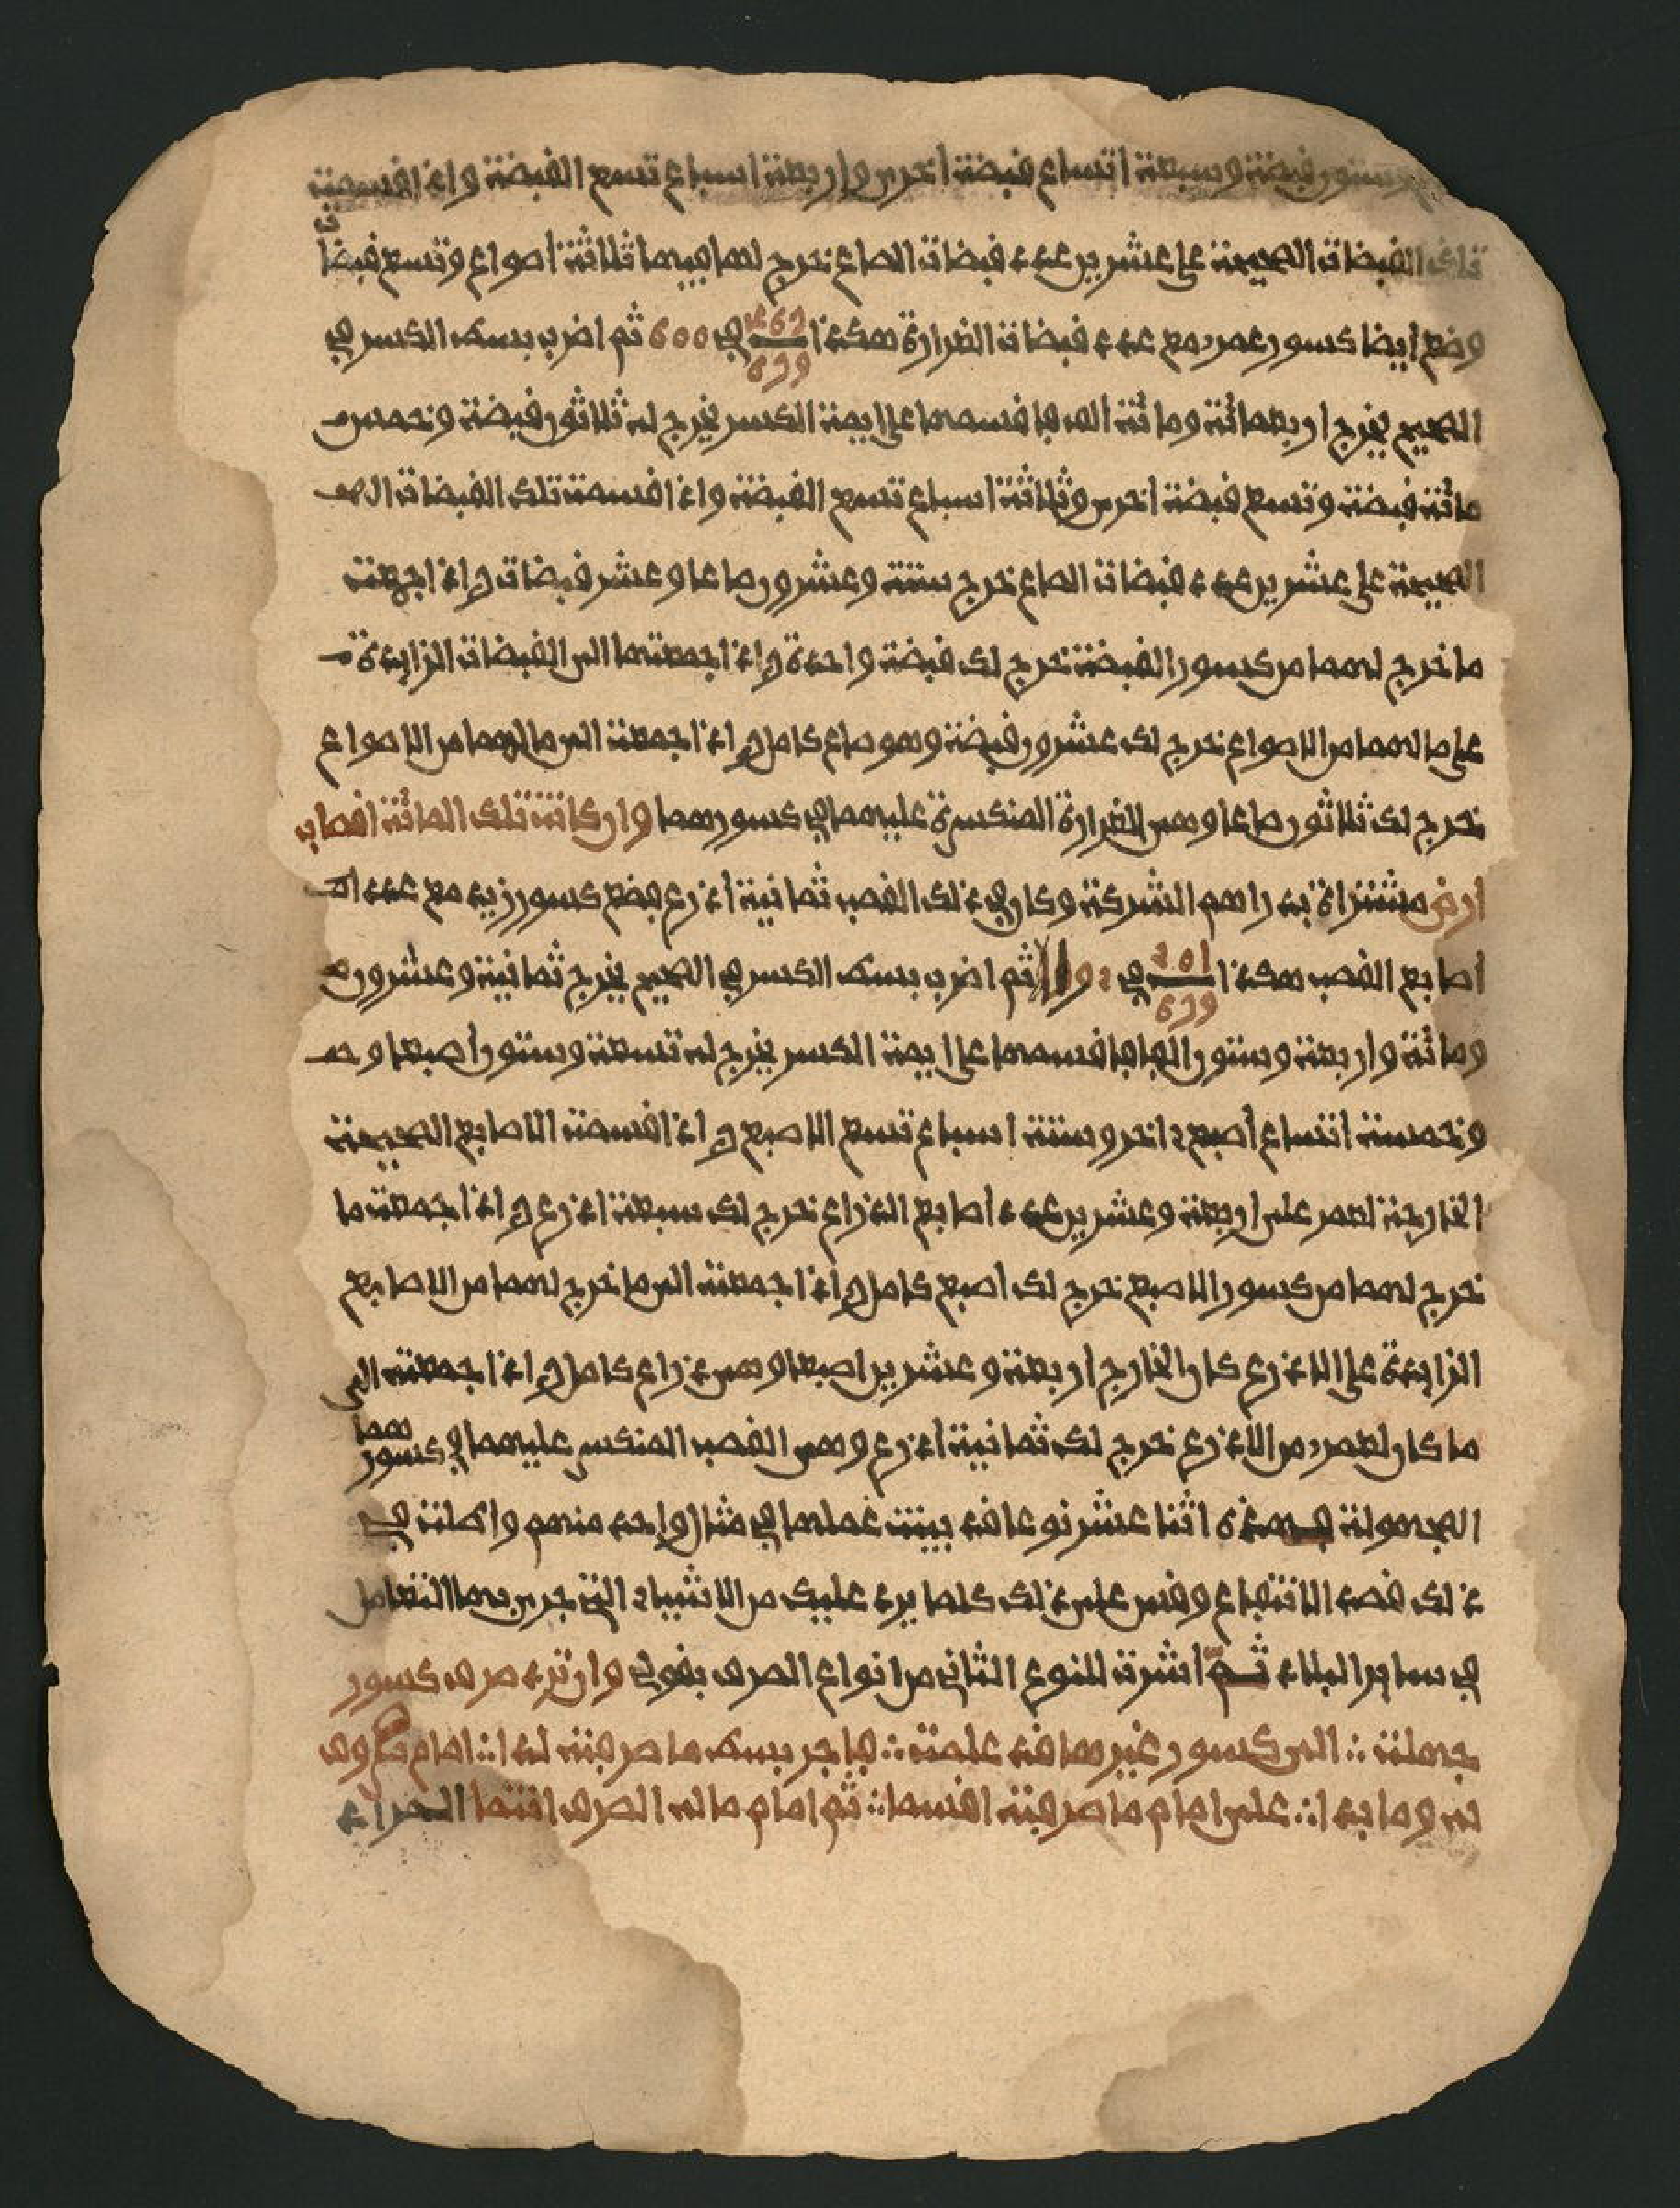 وستور فبضة وسبعة اتساع فبضة اخرى واربعة اسباع تسع الفبضة واذا افسمت
تلك الفبضات الصحيحة على عشرين عدد فبضات الصاع خرج لهما فيهما ثلاثة اصواع وتسع فبضات
وضع ايضا كسور عمرو مع عدد فبضات الغرارة هكذا في 600 ثم اضرب بسط الكسر في
الصحيح يخرج اربعمائة ومائة الف فافسمها على ايمة الكسر يخرج له ثلاثون فبضة وخمس
مائة فبضة وتسع فبضة اخرى وثلاثة اسباع تسع الفبضة واذا افسمت تلك الفبضات
الصحيحة على عشرين عدد فبضات الصاع خرج ستة وعشرون صاعا وعشر فبضات واذا جمعت
ما خرج لهما من كسور الفبضة خرج لك فبضة واحدة واذا جمعتها الى الفبضات الزايدة
على ما لهما من الاصواع خرج لك عشرون فبضة وهو صاع كامل واذا جمعته الى ما لهما من الاصواع
خرج لك ثلاثون صاعا وهى الغرارة المنكسرة عليهما في كسورهما وان كانت تلك المائة افصاب
ارض مشتراة بدراهم الشركة وكان في ذلك الفصب ثمانية اذرع فضع كسور زيد مع عدد
اصابع الفصب هكذا في ثم اضرب بسط الكسر في الصحيح يخرج ثمانية وعشرون
ومائة واربعة وستون الفا فافسمها على ايمة الكسر يخرج له تسعة وستون اصبعا
وخمسة اتساع اصبع اخر وستة اسباع تسع الاصبع واذا افسمت الاصابع الصحيحة
الخارجة لعمر على اربعة وعشرين عدد اصابع الذراع خرج لك سبعة اذرع واذا جمعت ما
خرج لهما من كسور الاصبع خرج لك اصبع كامل واذا جمعته الى ما خرج لهما من الاصابع
الزايدة على الاذرع كان الخارج اربعة وعشرين اصبعا وهى ذراع كامل واذا جمعته الى
ما كان لعمرو من الاذرع خرج لك ثمانية اذرع وهى الفصب المنكسر عليهما في كسورهما
المجهولة فهذه اثنا عشر نوعا فد بينت عملها في مثال واحد منهم واطلت في
ذلك فصد الانتفاع وفس على ذلك كلما يرد عليك من الاشياء التي جرى بها التعامل
في ساير البلاد ثم اشرت للنوع الثاني من انواع الصرف بفولي وان ترد صرف كسور
جهلت ∴ الى كسور غيرها فد علمت ∴ فاجر بسط ما صرفت له ا ∴ امام
له وما بدا ∴ على امام ما صرفت افسما ∴ ثم امام ما له الصرف انتما المراد